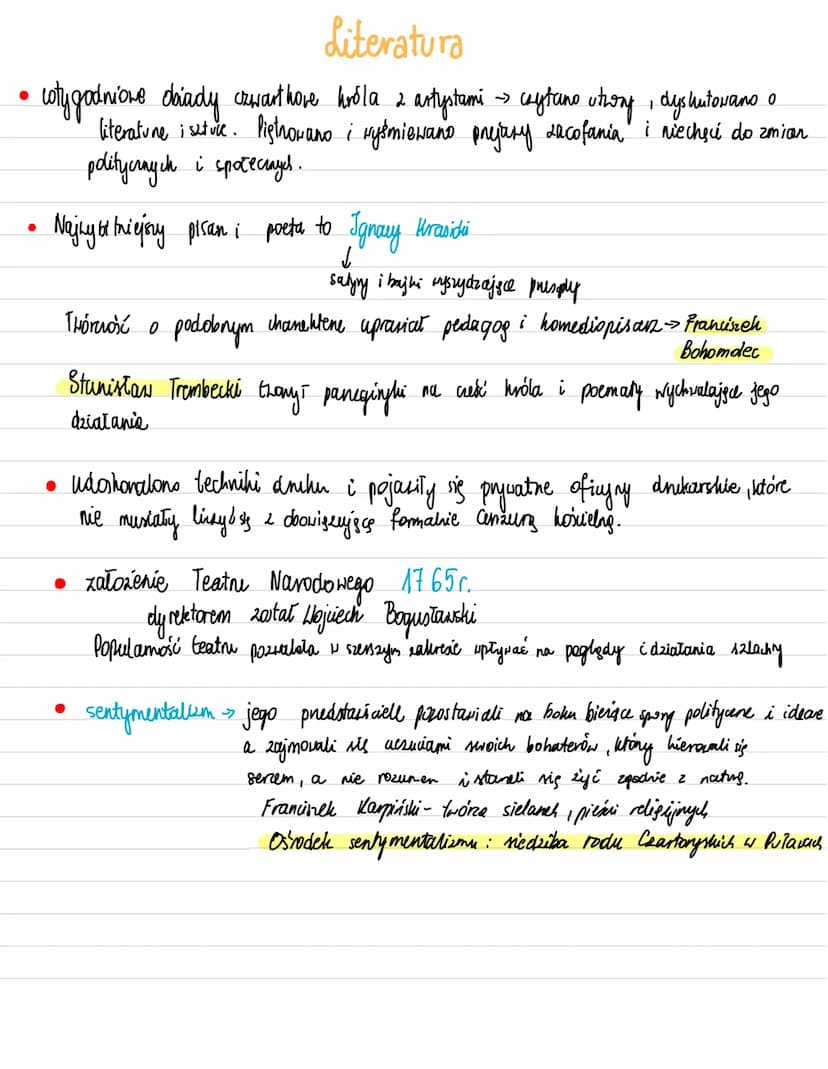 Literatura
• cotygodniowe obiady czwartkowe króla z artystami → czytano utwory, dyskutowano o
literaturze i sztuce. Piętnowano i wyśmiewano przejawy zacofania i niechęci do zmian
politycznych i społecznych.
• Najwybitniejszy pisarz i poeta to Ignacy Krasicki
↓
satyry i bajki wyszydzające przesądy
Twórczość o podobnym charakterze uprawiał pedagog i komediopisarz → Franciszek
Bohomolec
Stanisław Trembecki tworzył panegiryki na cześć króla i poematy wychwalające jego
działania
• udoskonalono techniki druku i pojawiły się prywatne oficyny drukarskie, które
nie musiały liczyć się z obowiązującą formalnie cenzurą kościelną.
• założenie Teatru Narodowego 1765r.
dyrektorem został Wojciech Bogusławski
Popularność teatru pozwalała w szerszym zakresie wpływać na poglądy i działania szlachty
• sentymentalizm → jego przedstawiciele pozostawiali na boku bieżące spory polityczne i ideowe
a zajmowali się uczuciami swoich bohaterów, którzy kierowali się
sercem, a nie rozumem i starali się żyć zgodnie z naturą.
Franciszek Karpiński - twórca sielanek, pieśni religijnych
Ośrodek sentymentalizmu: siedziba rodu Czartoryskich w Puławach